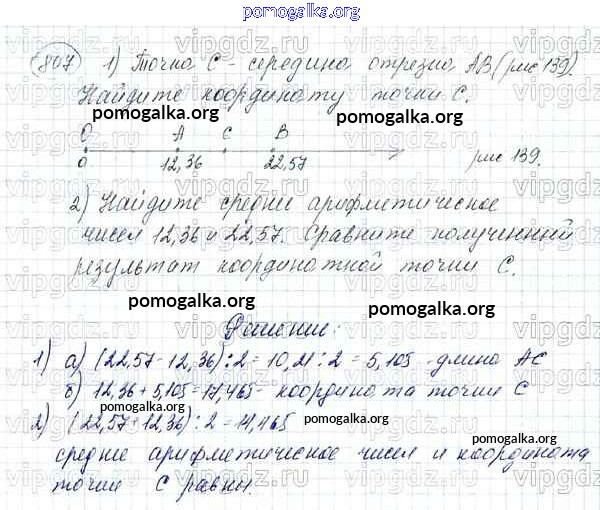 pomogalka.org
807 1) Точка С - середина отрезка АВ (рис 139).
Найдите координату точки С.
pomogalka.org
О А С В
0 12,36 22,57 рис 139.
2) Найдите среднее арифметическое
чисел 12,36 и 22,57. Сравните полученный
результат координатной точки С.
pomogalka.org
Решение:
1) а) (22,57-12,36):2=10,21:2=5,105 - длина АС
б) 12,36+5,105=17,465- координата точки С
pomogalka.org
2) (22,57+12,36):2=14,465
pomogalka.org
среднее арифметическое чисел и координата
точки С равны.
vipgdz.ru